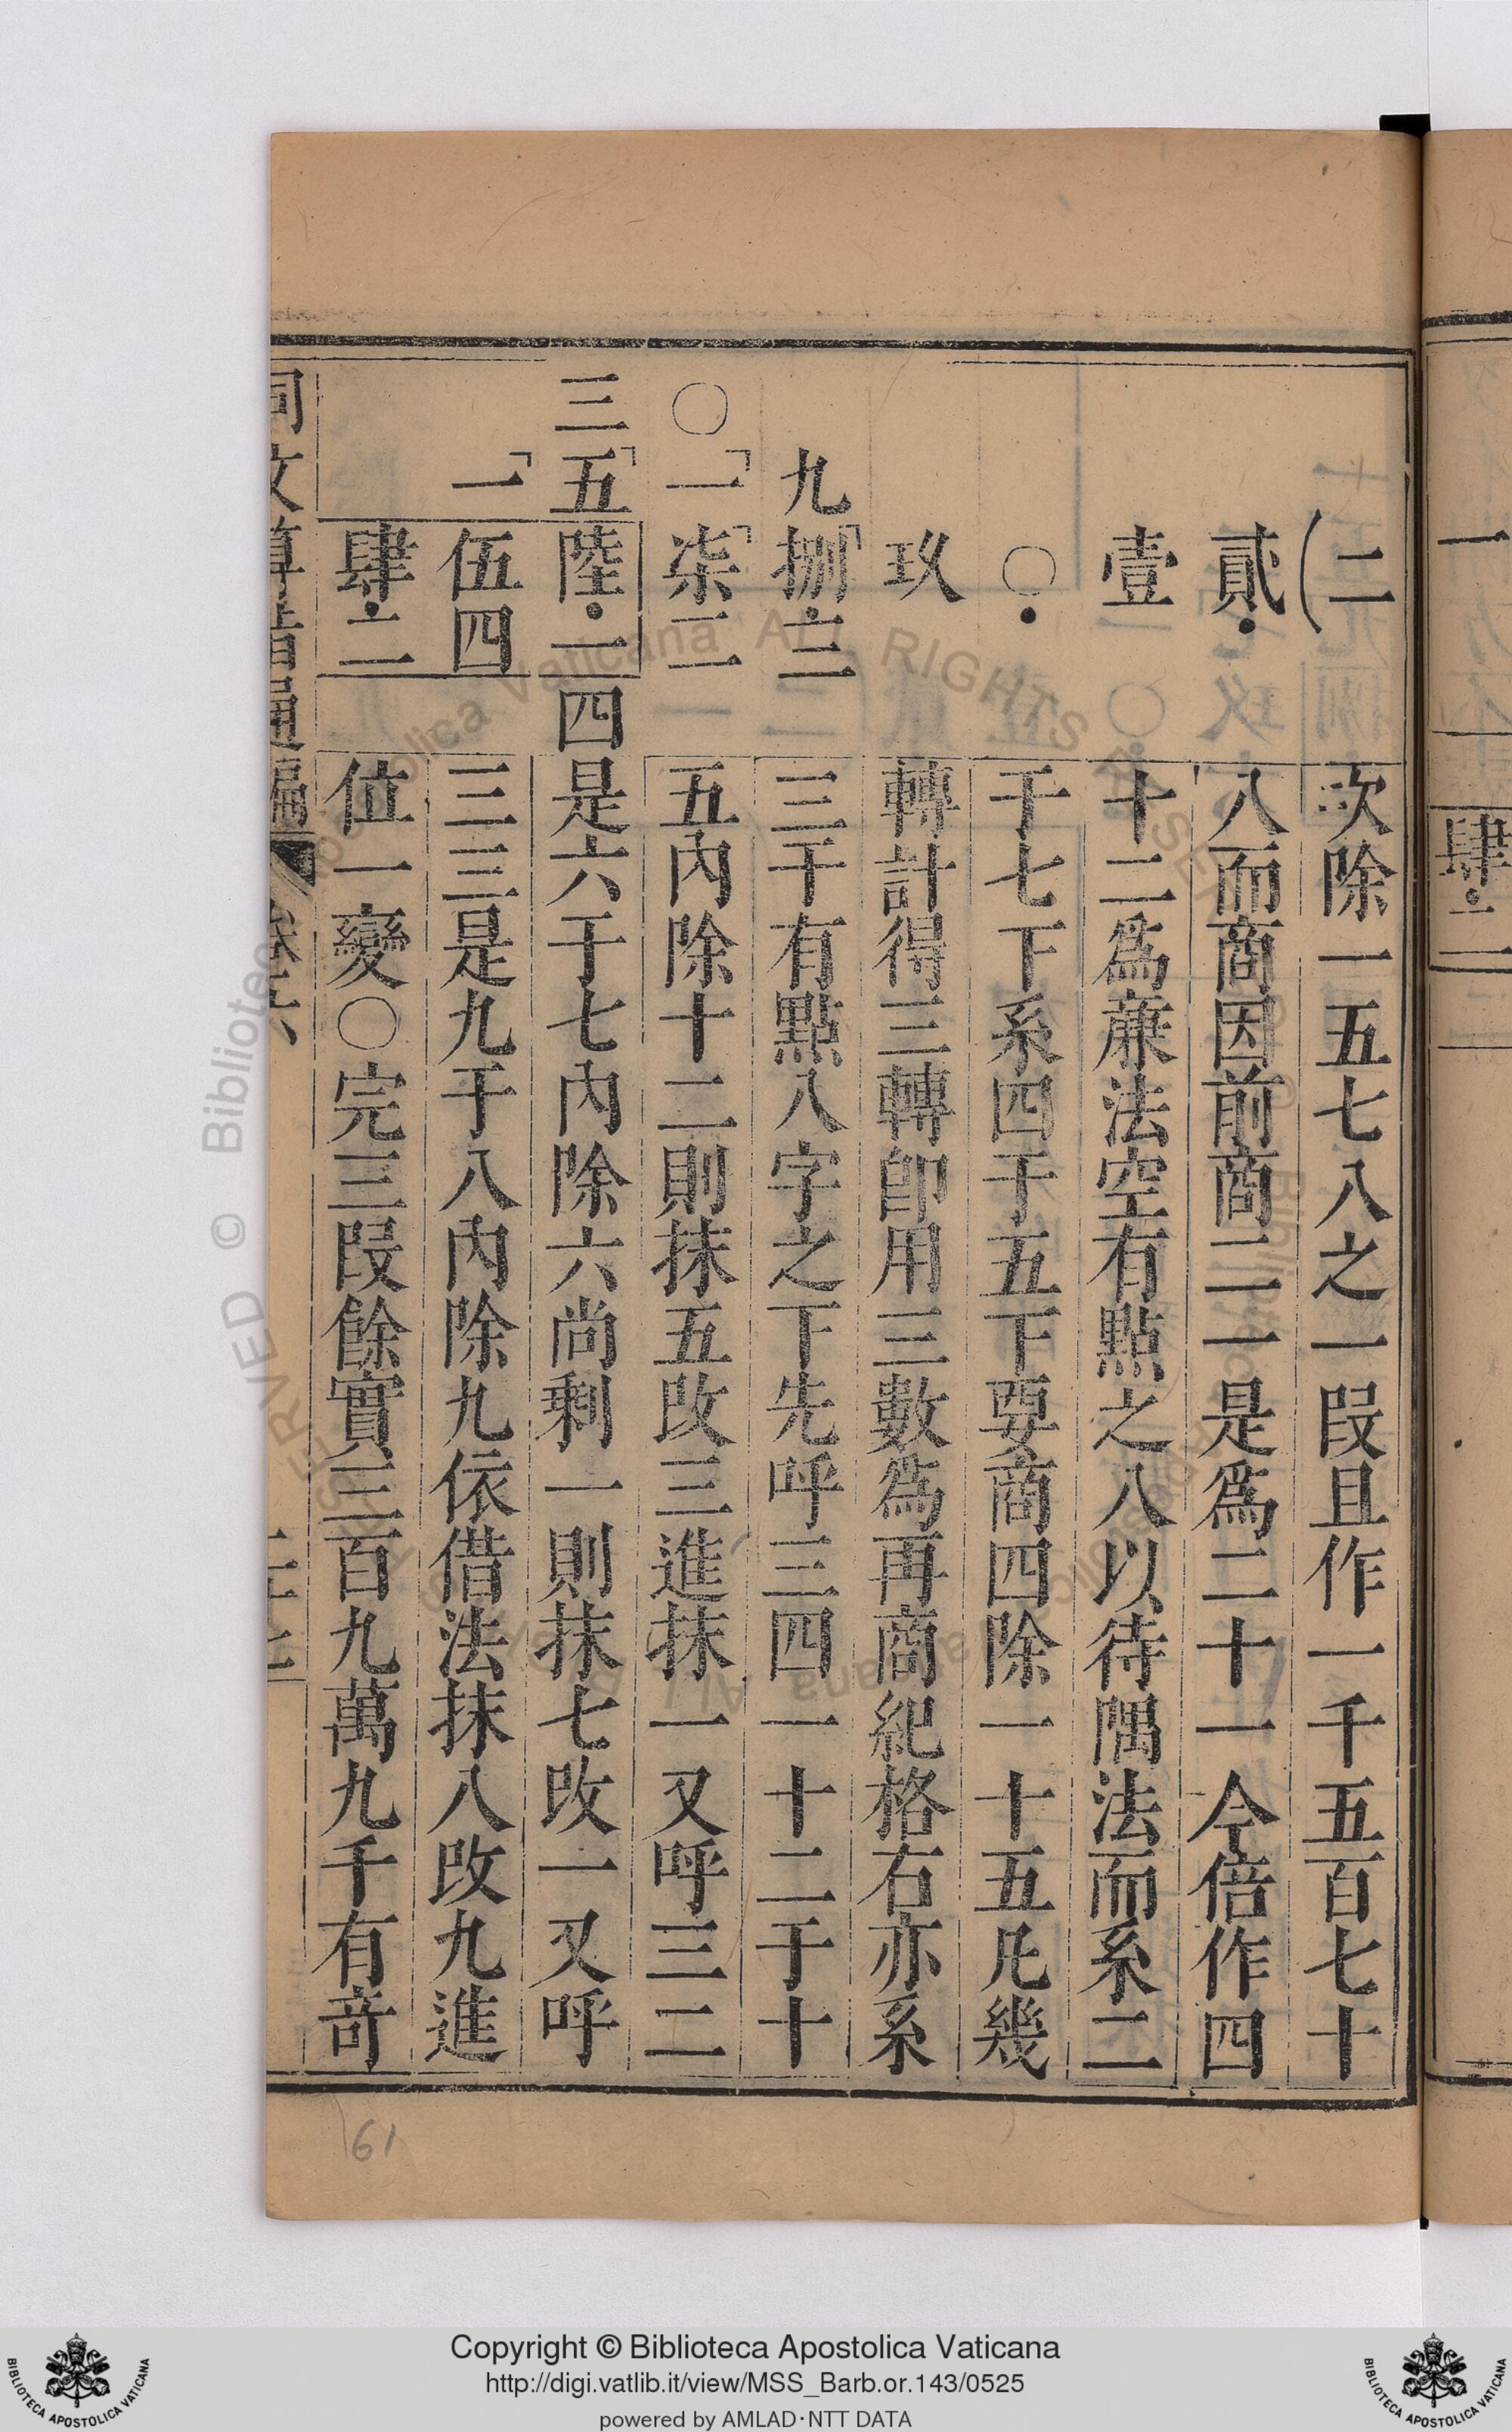 二
貳
壹
〇
玖
九捌三
〇一柒二
三五陸一四
一伍四
肆二
次除一五七八之一段且作一千五百七十
八而商因前商二一是爲二十一今倍作四
十二爲亷法空有點之八以待隅法而系二
于七下系四于五下要商四除一十五凡幾
轉計得三轉卽用三數爲再商紀格右亦系
三于有點八字之下先呼三四一十二于十
五內除十二則抹五改三進抹一又呼三二
是六于七內除六尚剩一則抹七改一又呼
三三是九于八內除九依借法抹八改九進
位一變〇完三段餘實三百九萬九千有奇
同文算指通編
卷六
肆二
161
© Biblioteca Apostolica Vaticana ALL RIGHTS RESERVED
BIBLIOTECA APOSTOLICA VATICANA
Copyright © Biblioteca Apostolica Vaticana
http://digi.vatlib.it/view/MSS_Barb.or.143/0525
powered by AMLAD·NTT DATA
BIBLIOTECA APOSTOLICA VATICANA